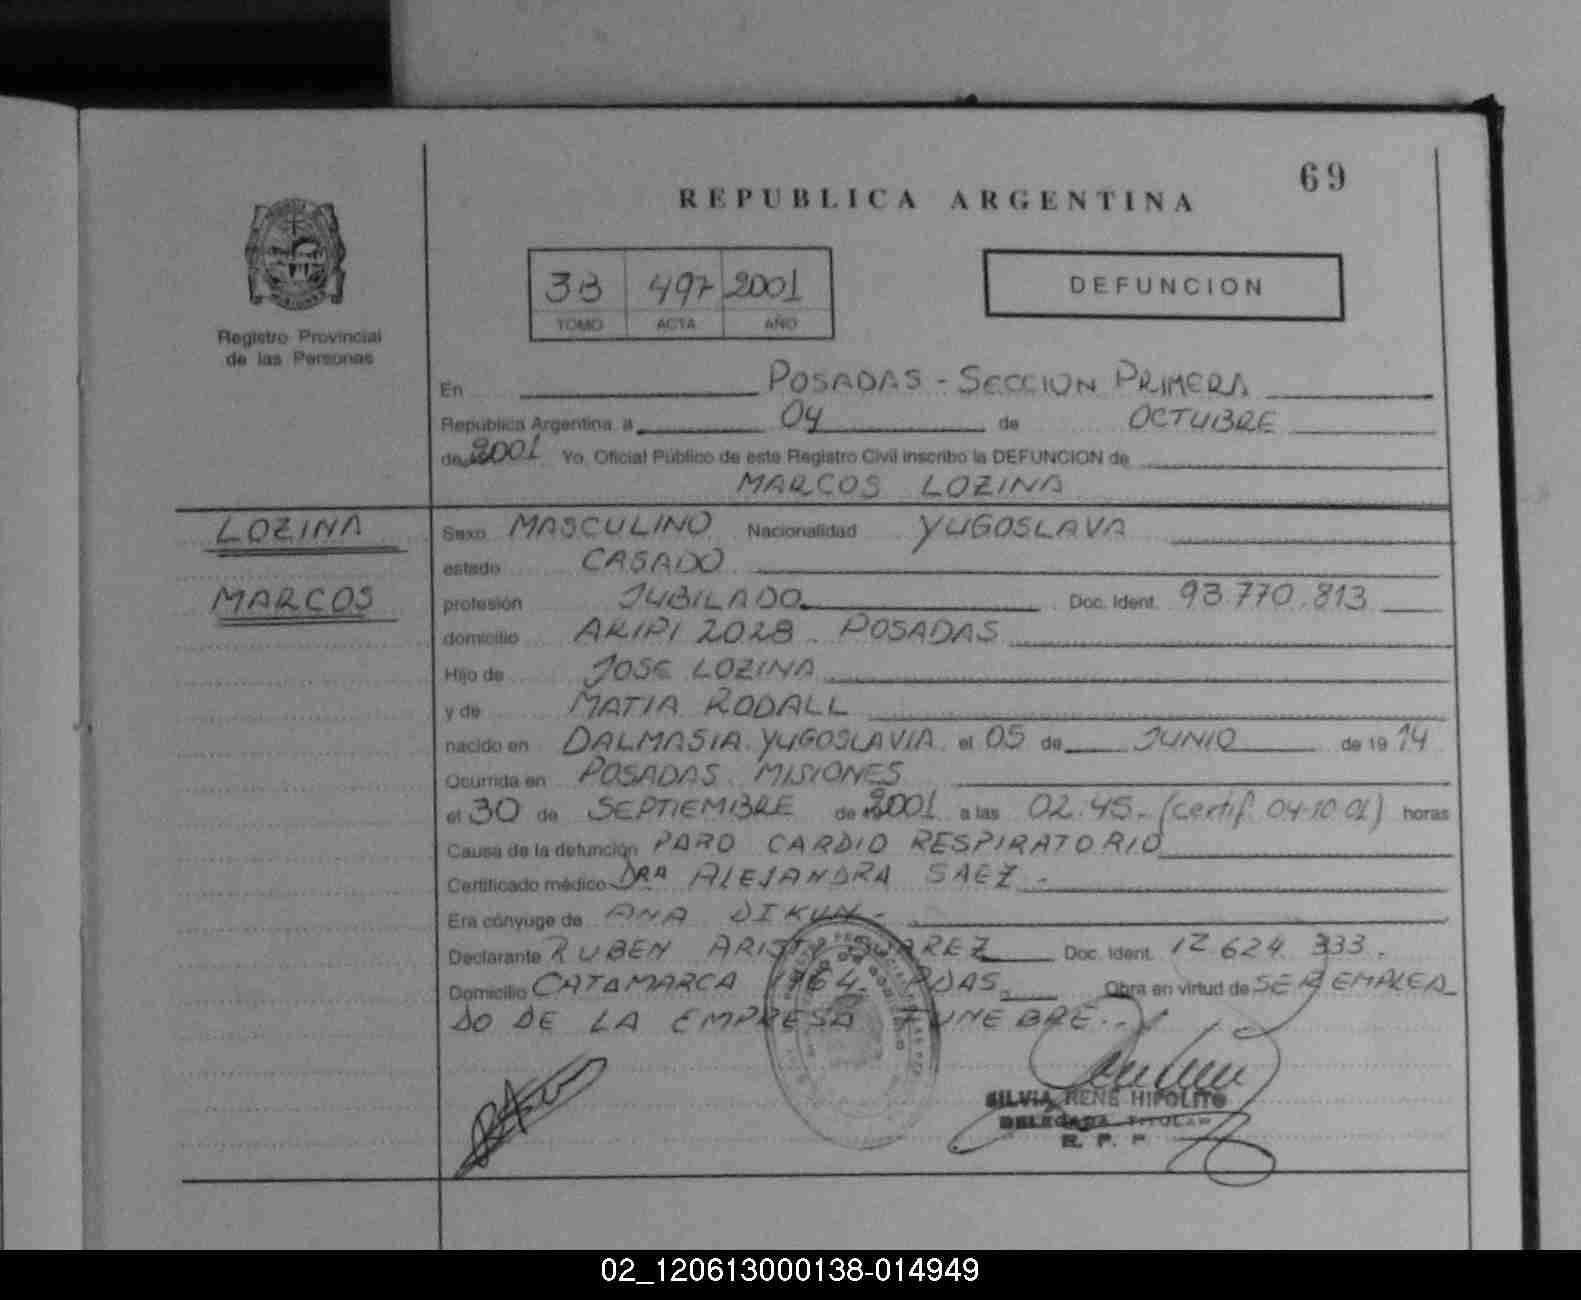 69
REPUBLICA ARGENTINA
3B 497 2001
TOMO ACTA AÑO
DEFUNCION
Registro Provincial
de las Personas
En POSADAS - SECCION PRIMERA
República Argentina, a 04 de OCTUBRE
de 2001 Yo, Oficial Público de este Registro Civil inscribo la DEFUNCION de
MARCOS LOZINA
LOZINA
MARCOS
Sexo MASCULINO Nacionalidad YUGOSLAVA
estado CASADO
profesión JUBILADO Doc. Ident. 93.770.813
domicilio ARIPI 2028 - POSADAS
Hijo de JOSE LOZINA
y de MATIA RODALL
nacido en DALMASIA. YUGOSLAVIA. el 05 de JUNIO de 1914
Ocurrida en POSADAS. MISIONES
el 30 de SEPTIEMBRE de 2001 a las 02.45.- (certif. 04-10-01) horas
Causa de la defunción PARO CARDIO RESPIRATORIO
Certificado médico DRA ALEJANDRA SAEZ -
Era cónyuge de ANA DIKUN -
Declarante RUBEN SUAREZ Doc. Ident. 17.624.333.
Domicilio CATAMARCA 1764. PDAS. Obra en virtud de SER EMPLEA_
DO DE LA EMPRESA FUNEBRE..
SILVIA RENE HIPOLITO
DELEGADA TITULAR
R. P. P.
02_120613000138-014949